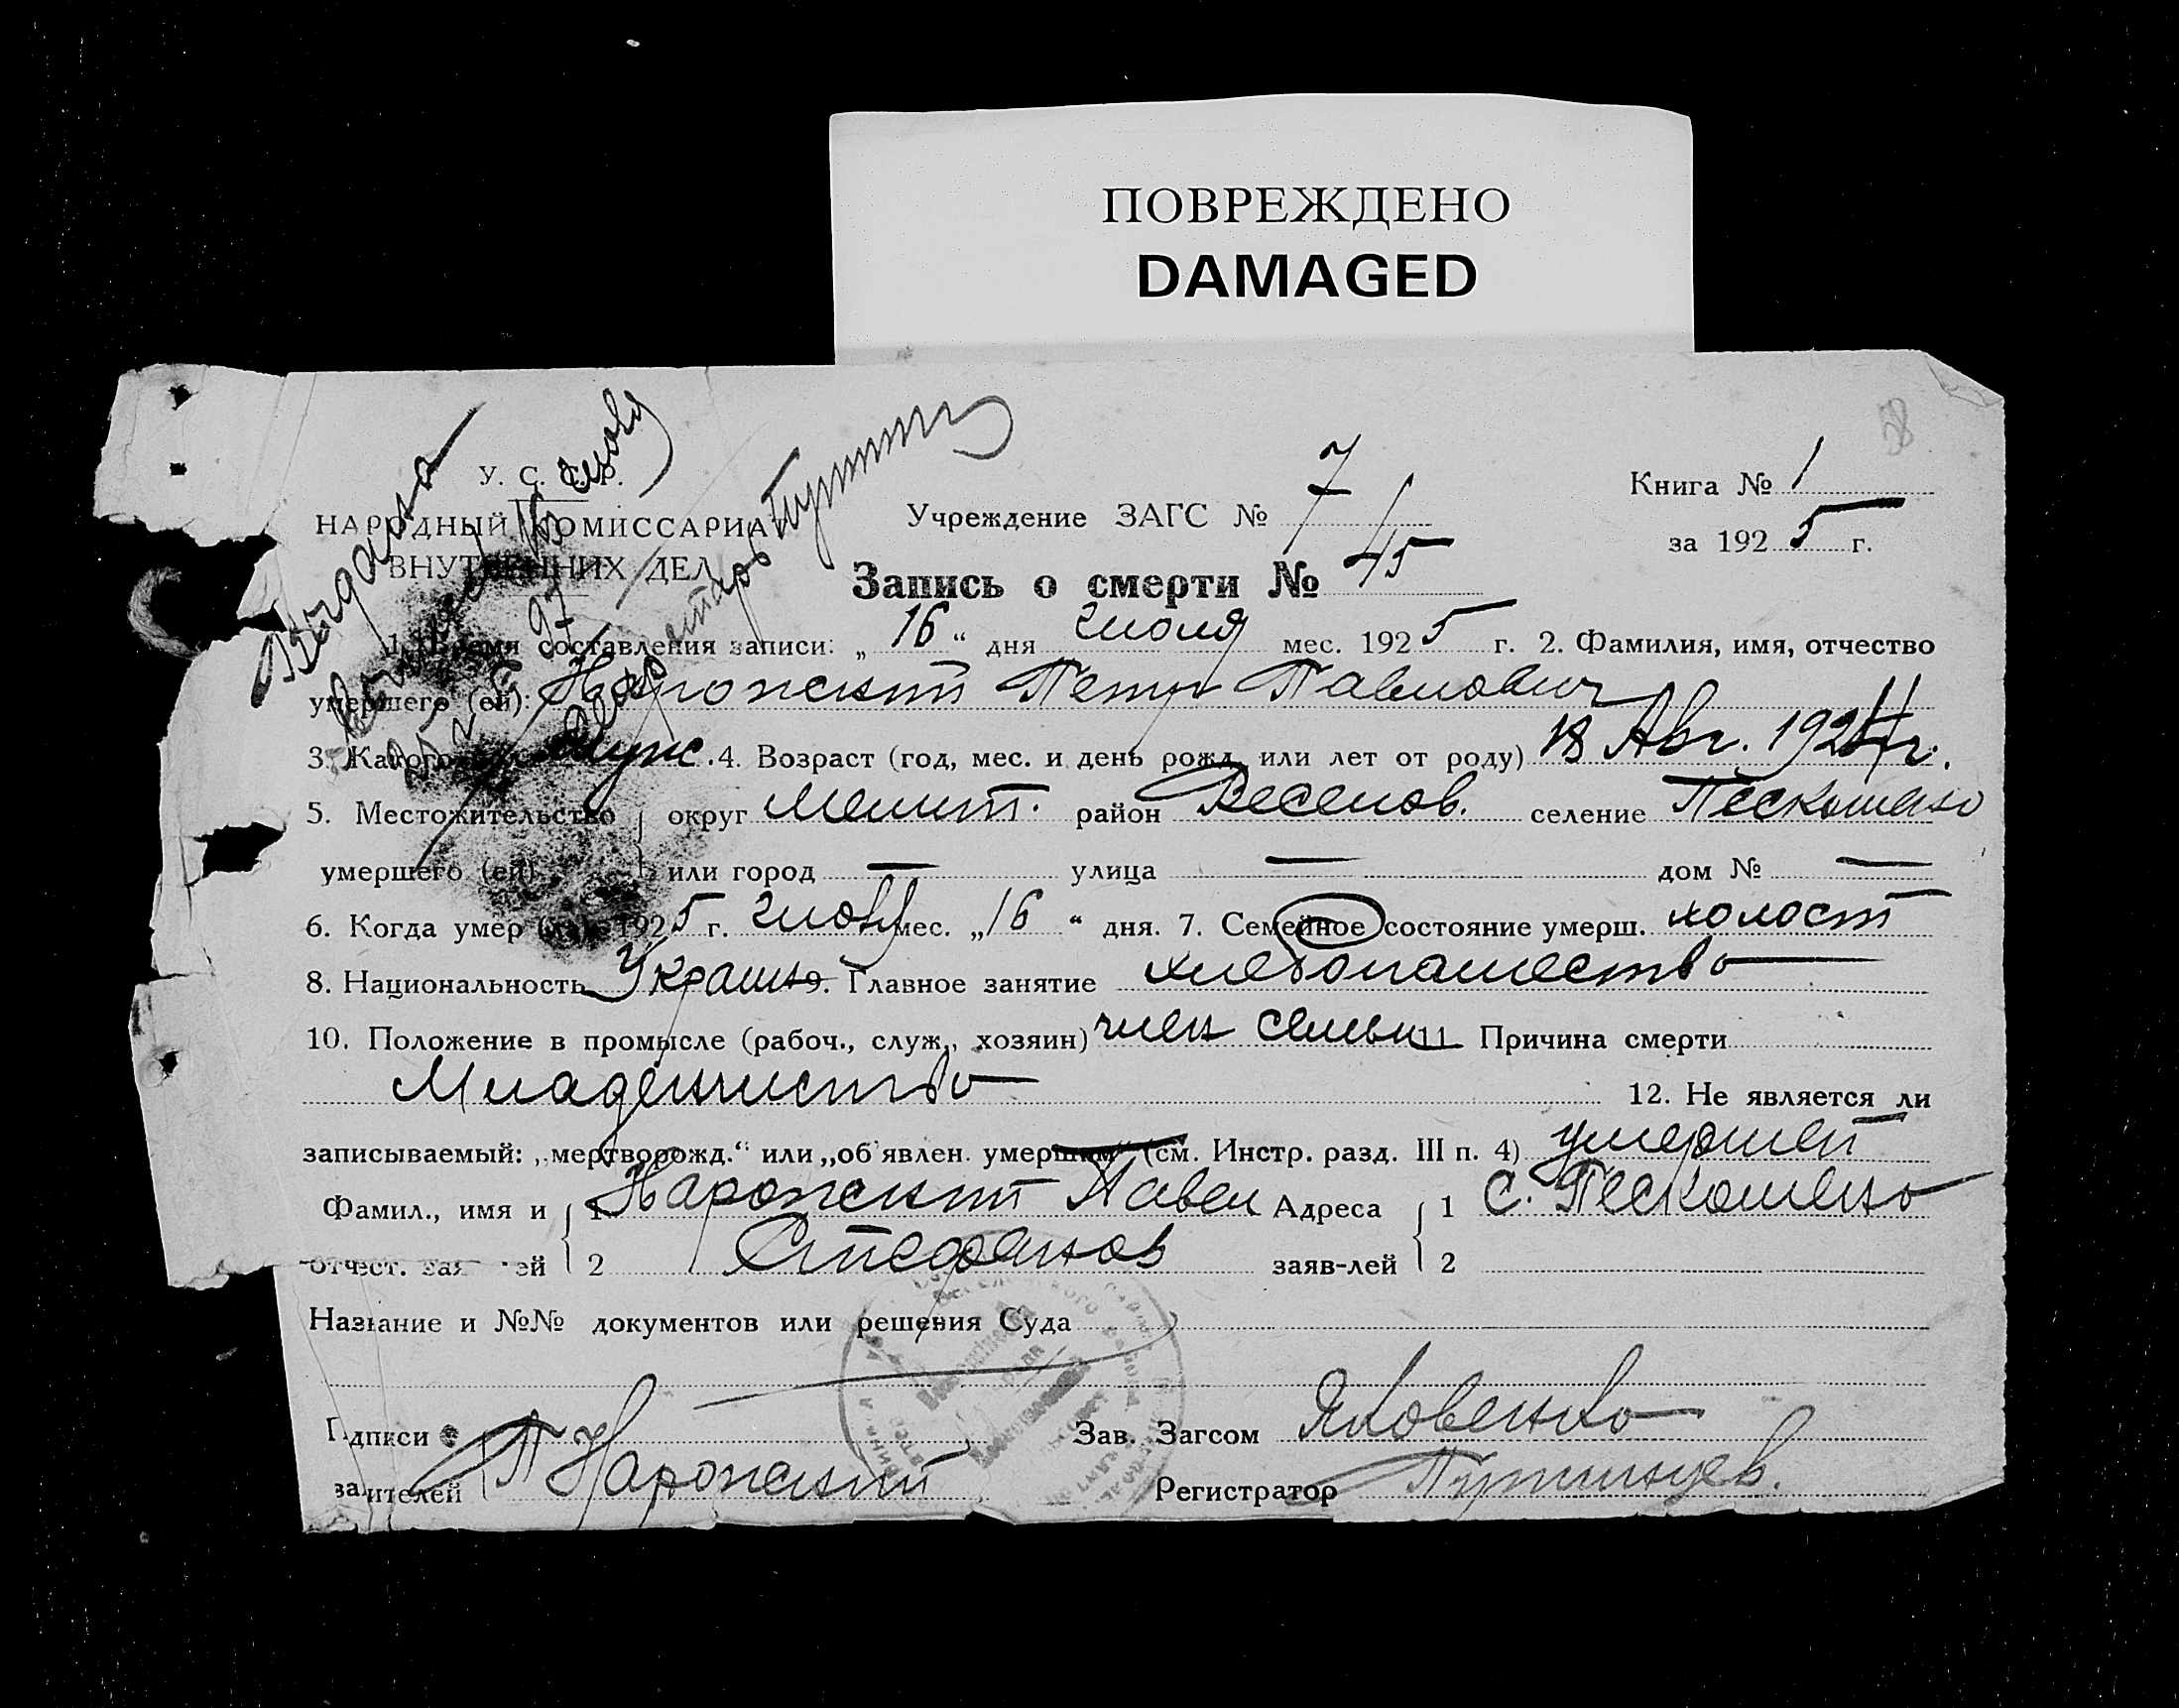 ПОВРЕЖДЕНО
DAMAGED
Выдана
У. С. С. Р.
НАРОДНЫЙ КОМИССАРИАТ
ВНУТРЕННИХ ДЕЛ
Учреждение ЗАГС № 7
Книга № 1
за 1925 г.
Запись о смерти № 45
1. Время составления записи: „16“ дня июля мес. 1925 г. 2. Фамилия, имя, отчество
умершего (ей): Нарожский Петр Павлович
3. Какого муж. 4. Возраст (год, мес. и день рожд. или лет от роду) 18 Авг. 1924 г.
5. Местожительство округ Мелит. район Веселов. селение Пескошено
умершего (ей) или город — улица — дом № —
6. Когда умер (ла) 1925 г. июля мес. „16“ дня. 7. Семейное состояние умерш. холост
8. Национальность Украин 9. Главное занятие хлебопашество
10. Положение в промысле (рабоч., служ., хозяин) член семьи 11 Причина смерти
Младенчество 12. Не является ли
записываемый: „мертворожд.“ или „об'явлен. умершим“ (см. Инстр. разд. III п. 4) умерший
Фамил., имя и 1 Нарожский Павел Адреса 1 С. Пескошено
отчест. зая ей 2 Стефанов заяв-лей 2
Название и №№ документов или решения Суда
Подписи Зав. Загсом Яковенко
заявителей П Нарожский Регистратор